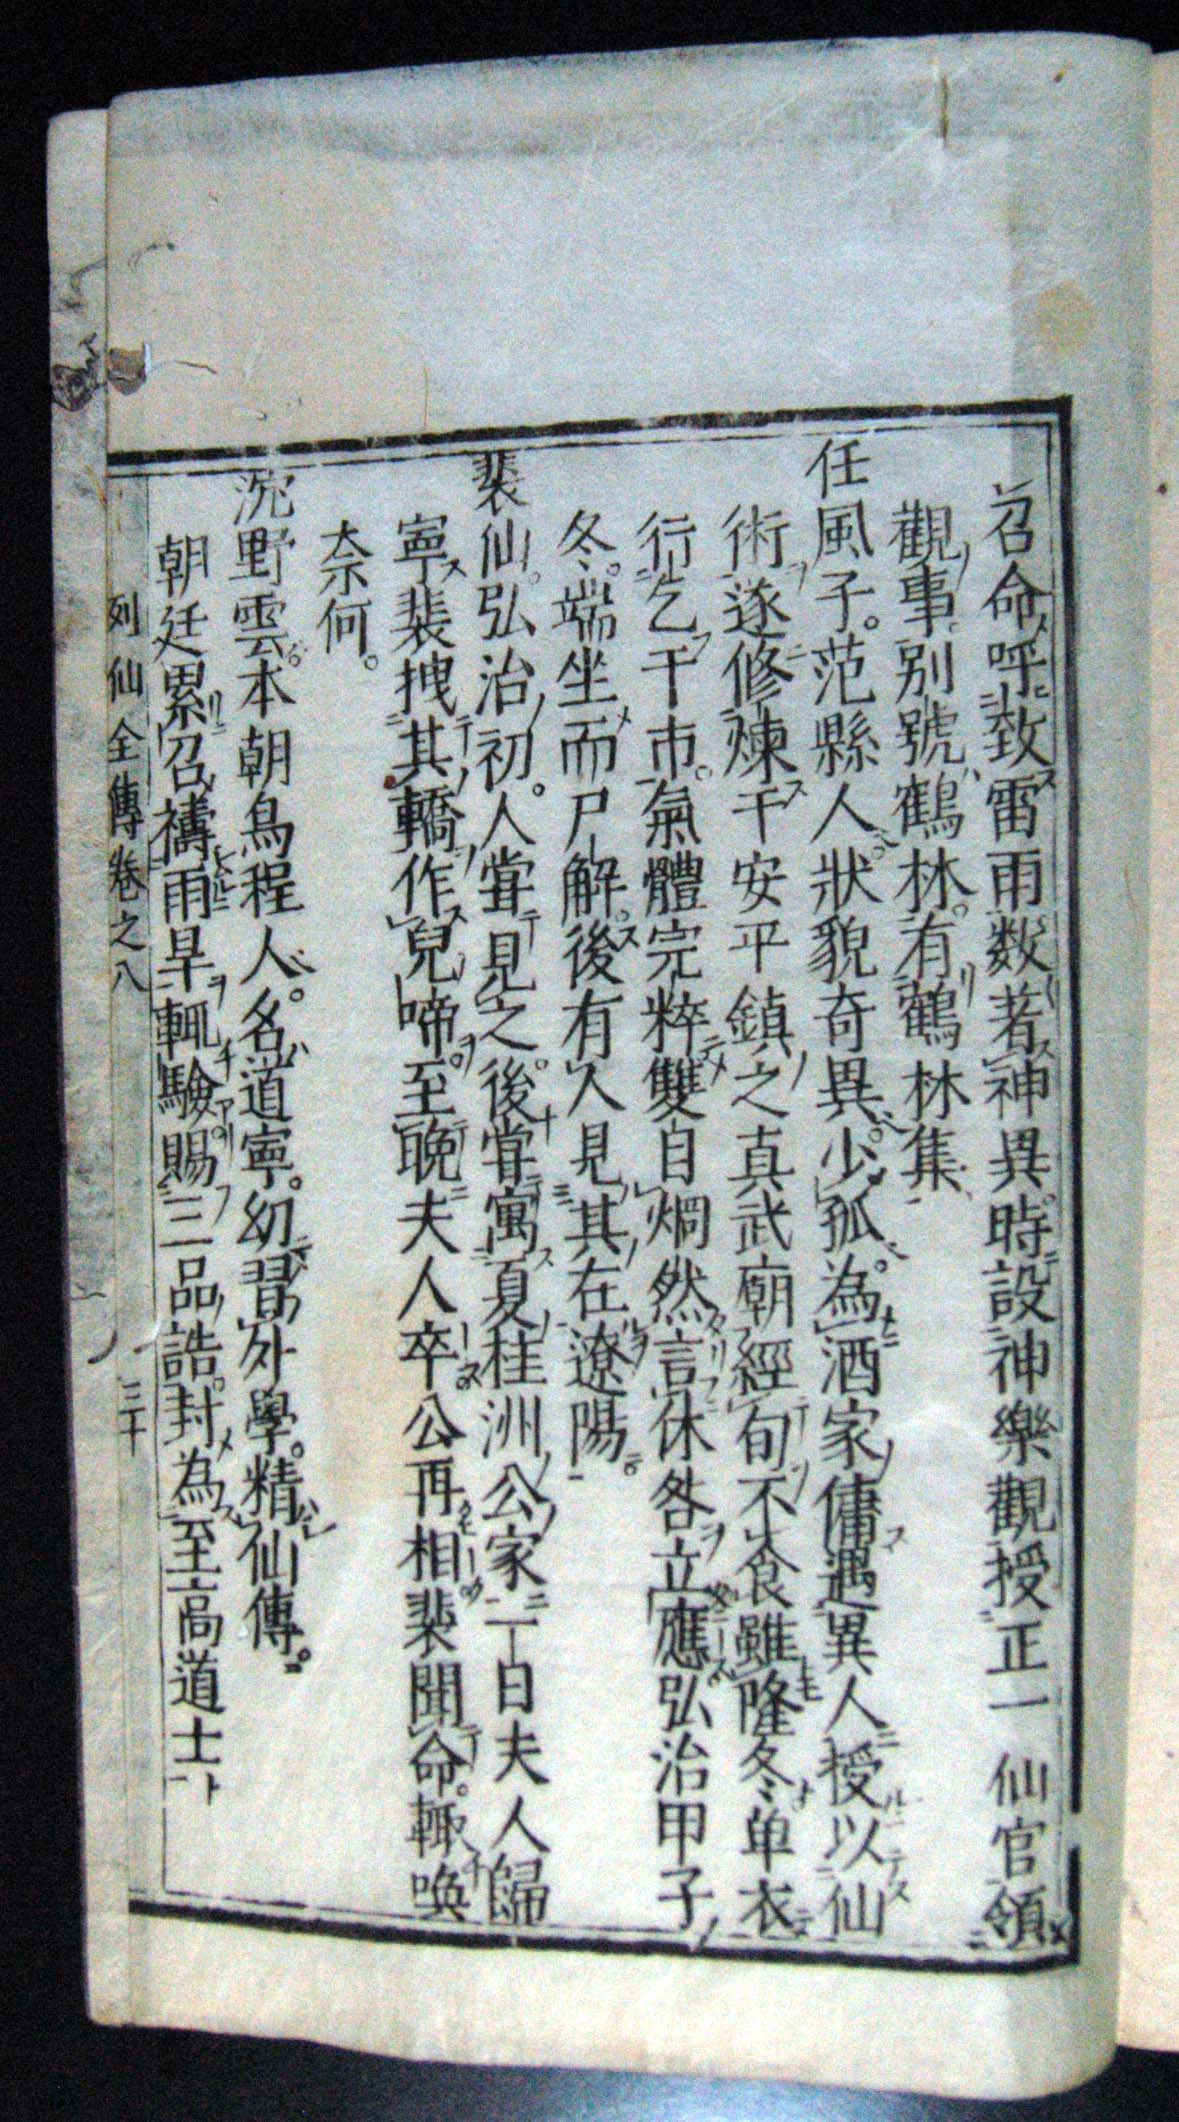 召命呼致雷雨数著神異時設神樂觀授正一仙官領
觀事别號鶴林。有鶴林集
任風子。范縣人。狀貌奇異。少孤。為酒家傭遇異人授以仙
術遂修煉于安平鎮之真武廟經旬不食雖隆冬单衣
行乞于市。氣體完粹雙目烱然言休咎立應。弘治甲子
冬。端坐而尸解。後有人見其在遼陽。
裴仙。弘治初。人甞見之。後甞寓夏桂洲公家一日夫人歸
寧裴拽其轎作兒啼。至晚夫人卒。公再相裴聞命。輙喚
奈何。
沈野雲。本朝烏程人。名道寧。幼習外學。精仙傳。
朝廷累召禱雨旱輒驗。賜三品誥。封為至高道士
列仙全傳卷之八 三十